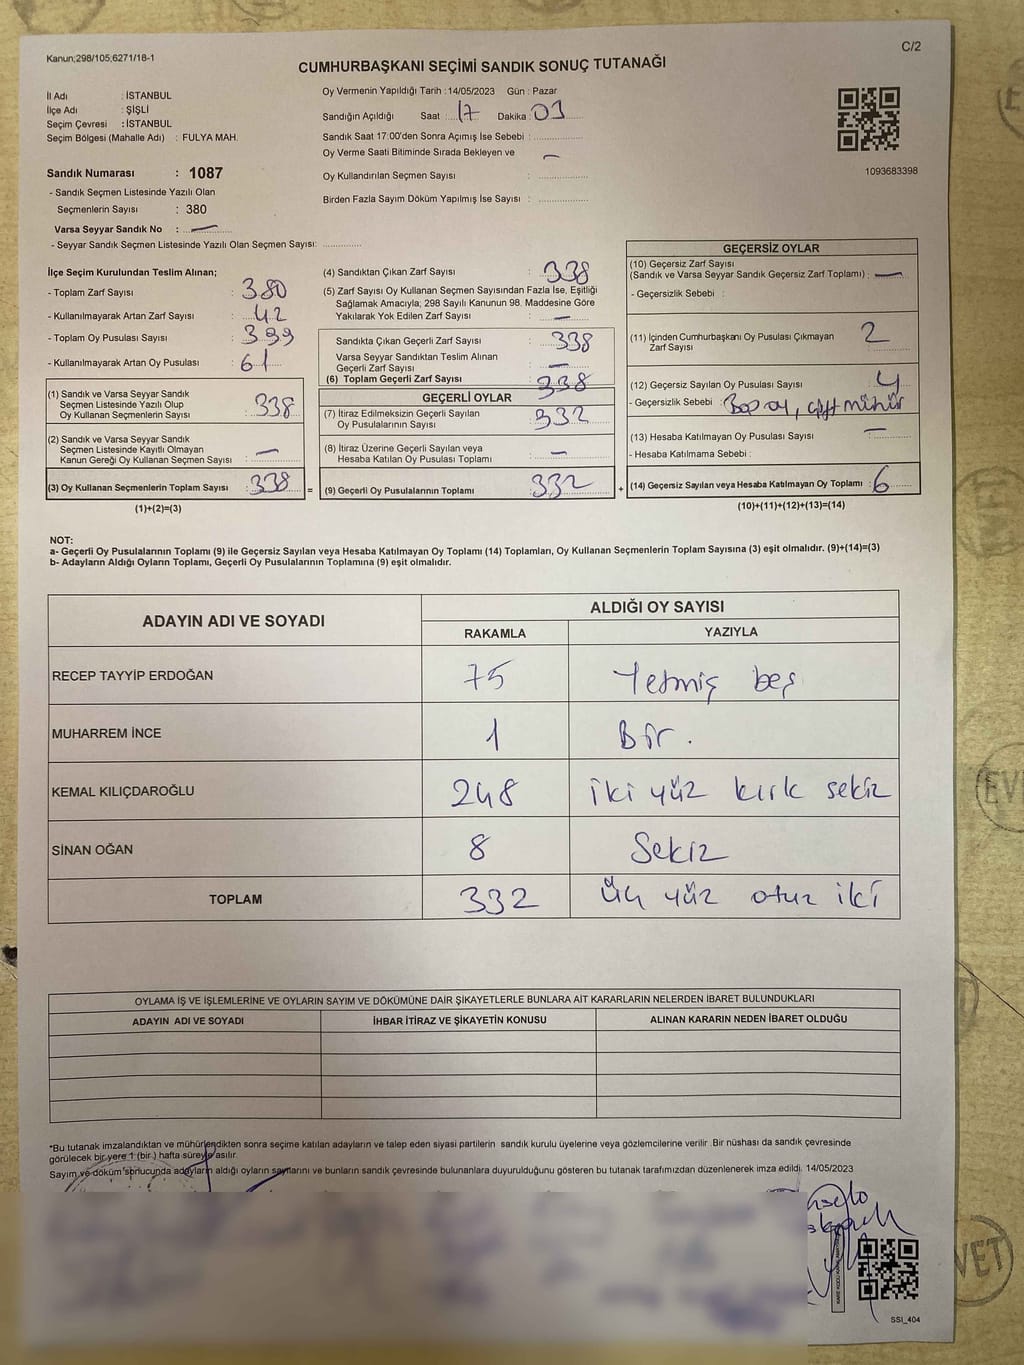 Kanun;298/105;6271/18-1
C/2
CUMHURBAŞKANI SEÇİMİ SANDIK SONUÇ TUTANAĞI
İl Adı : İSTANBUL
İlçe Adı : ŞİŞLİ
Seçim Çevresi : İSTANBUL
Seçim Bölgesi (Mahalle Adı) : FULYA MAH.
Oy Vermenin Yapıldığı Tarih : 14/05/2023 Gün : Pazar
Sandığın Açıldığı Saat : 17 Dakika : 01
Sandık Saat 17:00'den Sonra Açımış İse Sebebi :
Oy Verme Saati Bitiminde Sırada Bekleyen ve
Oy Kullandırılan Seçmen Sayısı : —
Birden Fazla Sayım Döküm Yapılmış İse Sayısı :
1093683398
Sandık Numarası : 1087
- Sandık Seçmen Listesinde Yazılı Olan
Seçmenlerin Sayısı : 380
Varsa Seyyar Sandık No : —
- Seyyar Sandık Seçmen Listesinde Yazılı Olan Seçmen Sayısı:
İlçe Seçim Kurulundan Teslim Alınan;
- Toplam Zarf Sayısı : 380
- Kullanılmayarak Artan Zarf Sayısı : 42
- Toplam Oy Pusulası Sayısı : 399
- Kullanılmayarak Artan Oy Pusulası : 61
(1) Sandık ve Varsa Seyyar Sandık
Seçmen Listesinde Yazılı Olup
Oy Kullanan Seçmenlerin Sayısı : 338
(2) Sandık ve Varsa Seyyar Sandık
Seçmen Listesinde Kayıtlı Olmayan
Kanun Gereği Oy Kullanan Seçmen Sayısı : —
(3) Oy Kullanan Seçmenlerin Toplam Sayısı : 338 =
(1)+(2)=(3)
(4) Sandıktan Çıkan Zarf Sayısı : 338
(5) Zarf Sayısı Oy Kullanan Seçmen Sayısından Fazla İse, Eşitliği
Sağlamak Amacıyla; 298 Sayılı Kanunun 98. Maddesine Göre
Yakılarak Yok Edilen Zarf Sayısı : —
Sandıkta Çıkan Geçerli Zarf Sayısı : 338
Varsa Seyyar Sandıktan Teslim Alınan
Geçerli Zarf Sayısı : —
(6) Toplam Geçerli Zarf Sayısı : 338
GEÇERLİ OYLAR
(7) İtiraz Edilmeksizin Geçerli Sayılan
Oy Pusulalarının Sayısı : 332
(8) İtiraz Üzerine Geçerli Sayılan veya
Hesaba Katılan Oy Pusulası Toplamı : —
(9) Geçerli Oy Pusulalarının Toplamı : 332 +
GEÇERSİZ OYLAR
(10) Geçersiz Zarf Sayısı
(Sandık ve Varsa Seyyar Sandık Geçersiz Zarf Toplamı) : —
- Geçersizlik Sebebi :
(11) İçinden Cumhurbaşkanı Oy Pusulası Çıkmayan
Zarf Sayısı : 2
(12) Geçersiz Sayılan Oy Pusulası Sayısı : 4
- Geçersizlik Sebebi : Boş oy, çift mühür
(13) Hesaba Katılmayan Oy Pusulası Sayısı : —
- Hesaba Katılmama Sebebi :
(14) Geçersiz Sayılan veya Hesaba Katılmayan Oy Toplamı : 6
(10)+(11)+(12)+(13)=(14)
NOT:
a- Geçerli Oy Pusulalarının Toplamı (9) ile Geçersiz Sayılan veya Hesaba Katılmayan Oy Toplamı (14) Toplamları, Oy Kullanan Seçmenlerin Toplam Sayısına (3) eşit olmalıdır. (9)+(14)=(3)
b- Adayların Aldığı Oyların Toplamı, Geçerli Oy Pusulalarının Toplamına (9) eşit olmalıdır.
ADAYIN ADI VE SOYADI
ALDIĞI OY SAYISI
RAKAMLA YAZIYLA
RECEP TAYYİP ERDOĞAN 75 Yetmiş beş
MUHARREM İNCE 1 Bir.
KEMAL KILIÇDAROĞLU 248 iki yüz kırk sekiz
SİNAN OĞAN 8 Sekiz
TOPLAM 332 Üç yüz otuz iki
OYLAMA İŞ VE İŞLEMLERİNE VE OYLARIN SAYIM VE DÖKÜMÜNE DAİR ŞİKAYETLERLE BUNLARA AİT KARARLARIN NELERDEN İBARET BULUNDUKLARI
ADAYIN ADI VE SOYADI İHBAR İTİRAZ VE ŞİKAYETİN KONUSU ALINAN KARARIN NEDEN İBARET OLDUĞU
*Bu tutanak imzalandıktan ve mühürlendikten sonra seçime katılan adayların ve talep eden siyasi partilerin sandık kurulu üyelerine veya gözlemcilerine verilir .Bir nüshası da sandık çevresinde
görülecek bir yere 1 (bir ) hafta süreyle asılır.
Sayım ve döküm sonucunda adayların aldığı oyların sayılarını ve bunların sandık çevresinde bulunanlara duyurulduğunu gösteren bu tutanak tarafımızdan düzenlenerek imza edildi. 14/05/2023
SSI_404
EVET